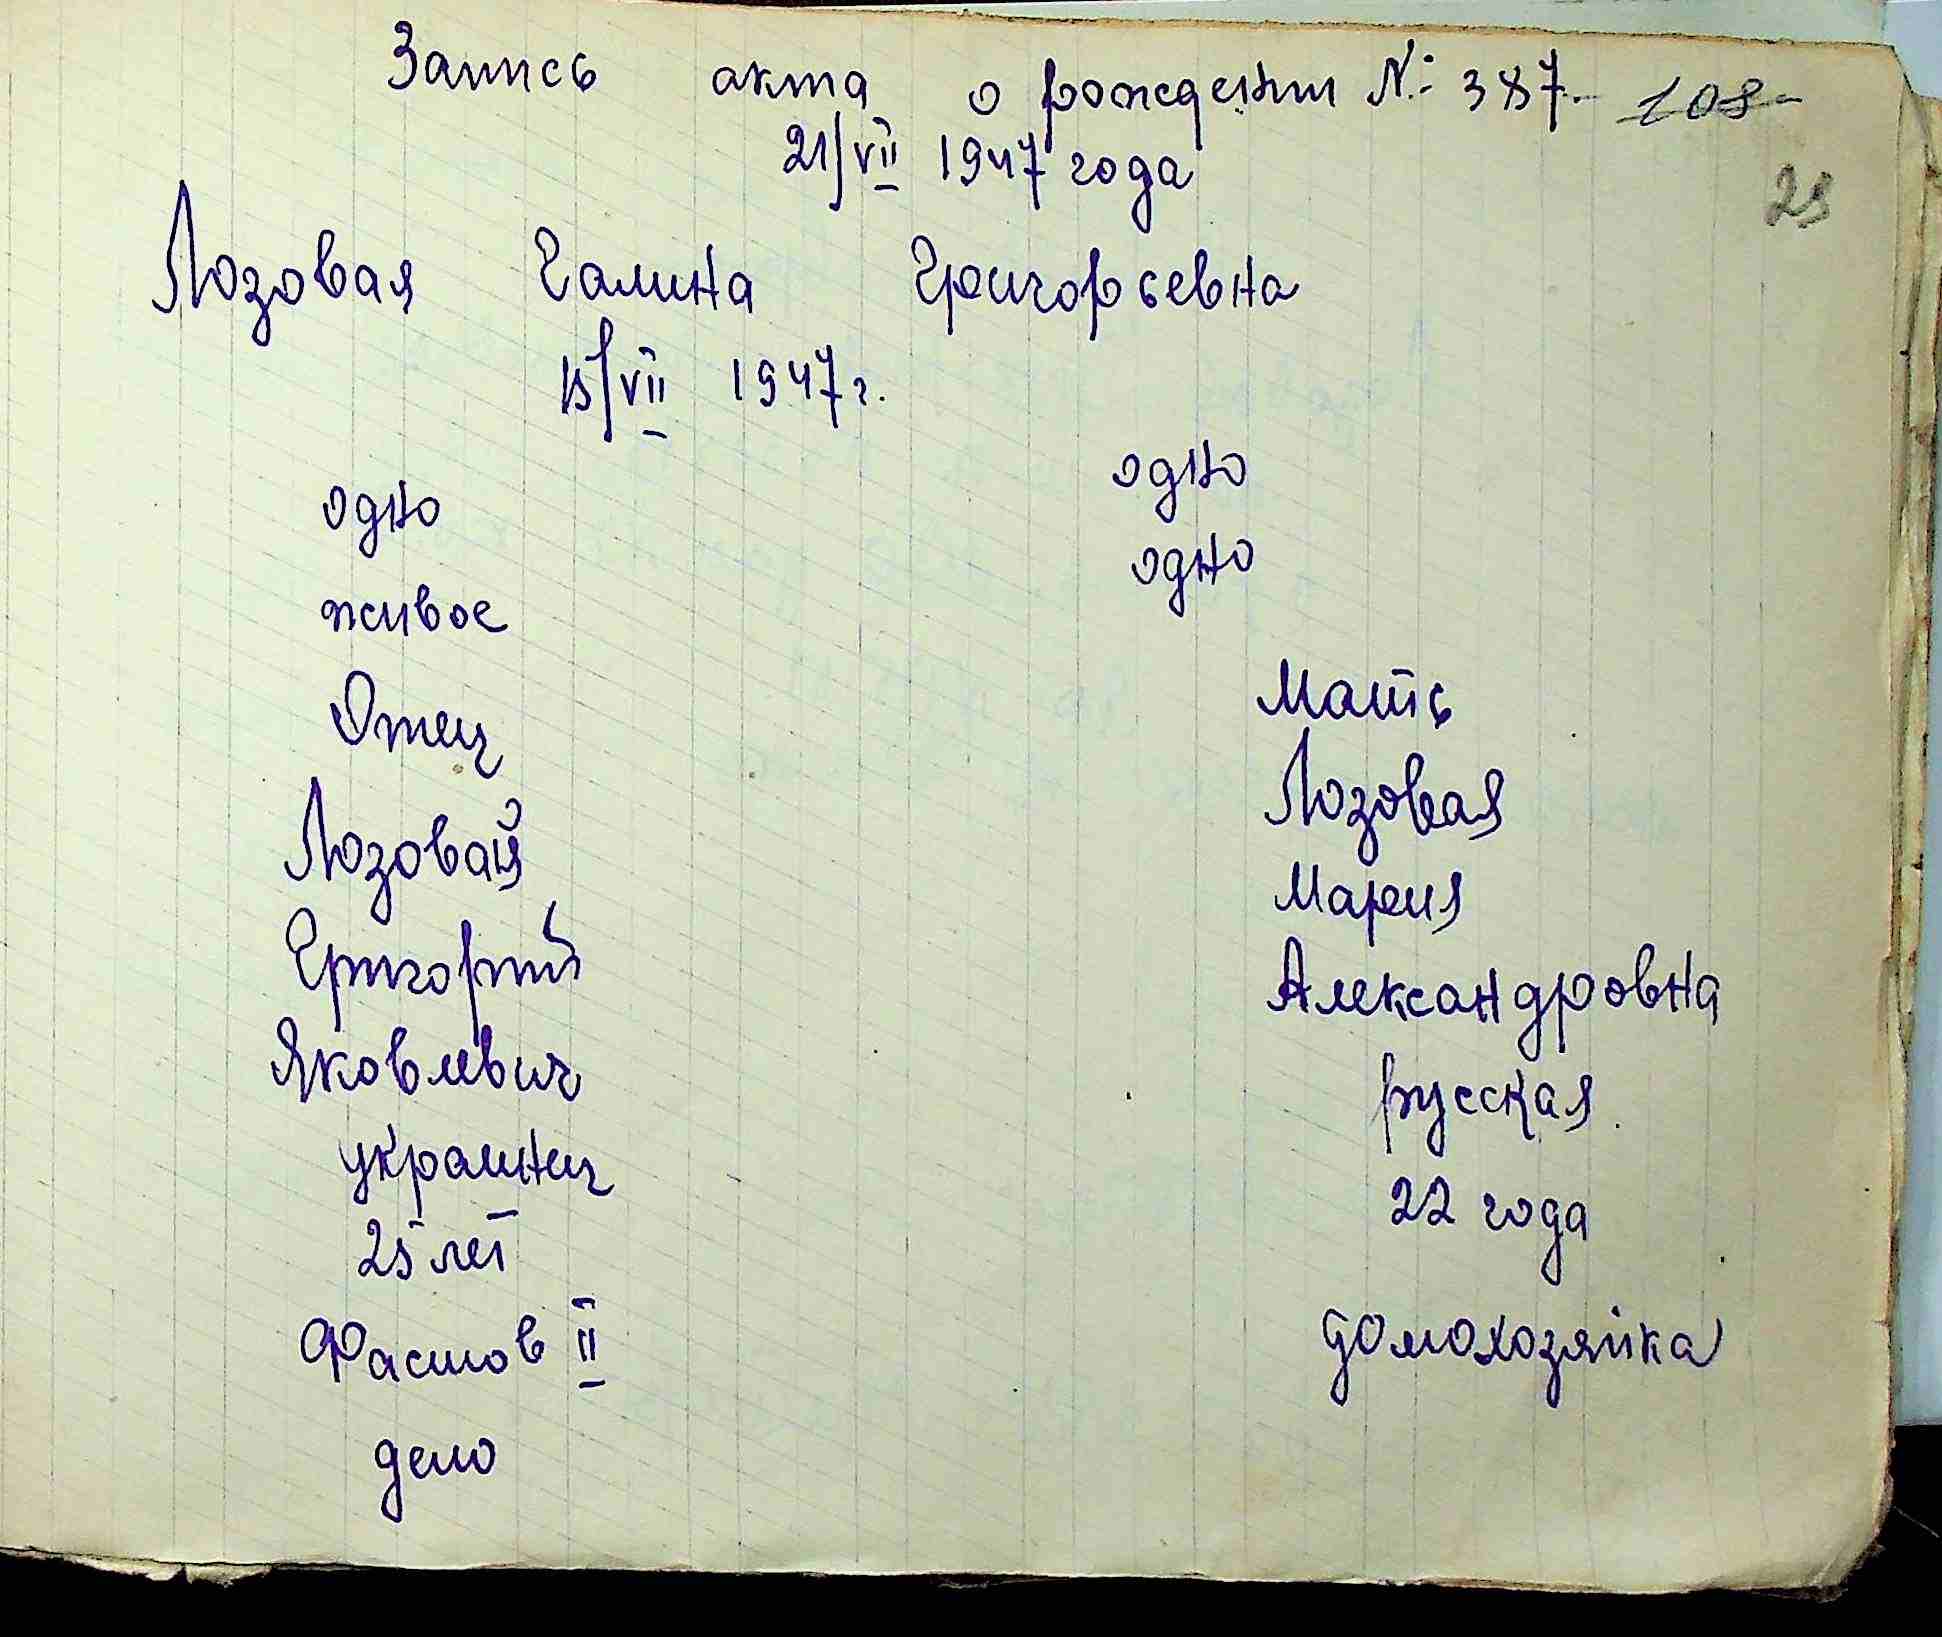 Запись акта о рождении №: 387. 108
25
21/VII 1947 года
Лозовая Галина Григорьевна
15/VII 1947 г.
одно одно
живое одно
Отец Мать
Лозовай Лозовая
Григорий Мария
Яковлевич Александровна
украинец русская
25 лет 22 года
Фастов II домохозяйка
дело